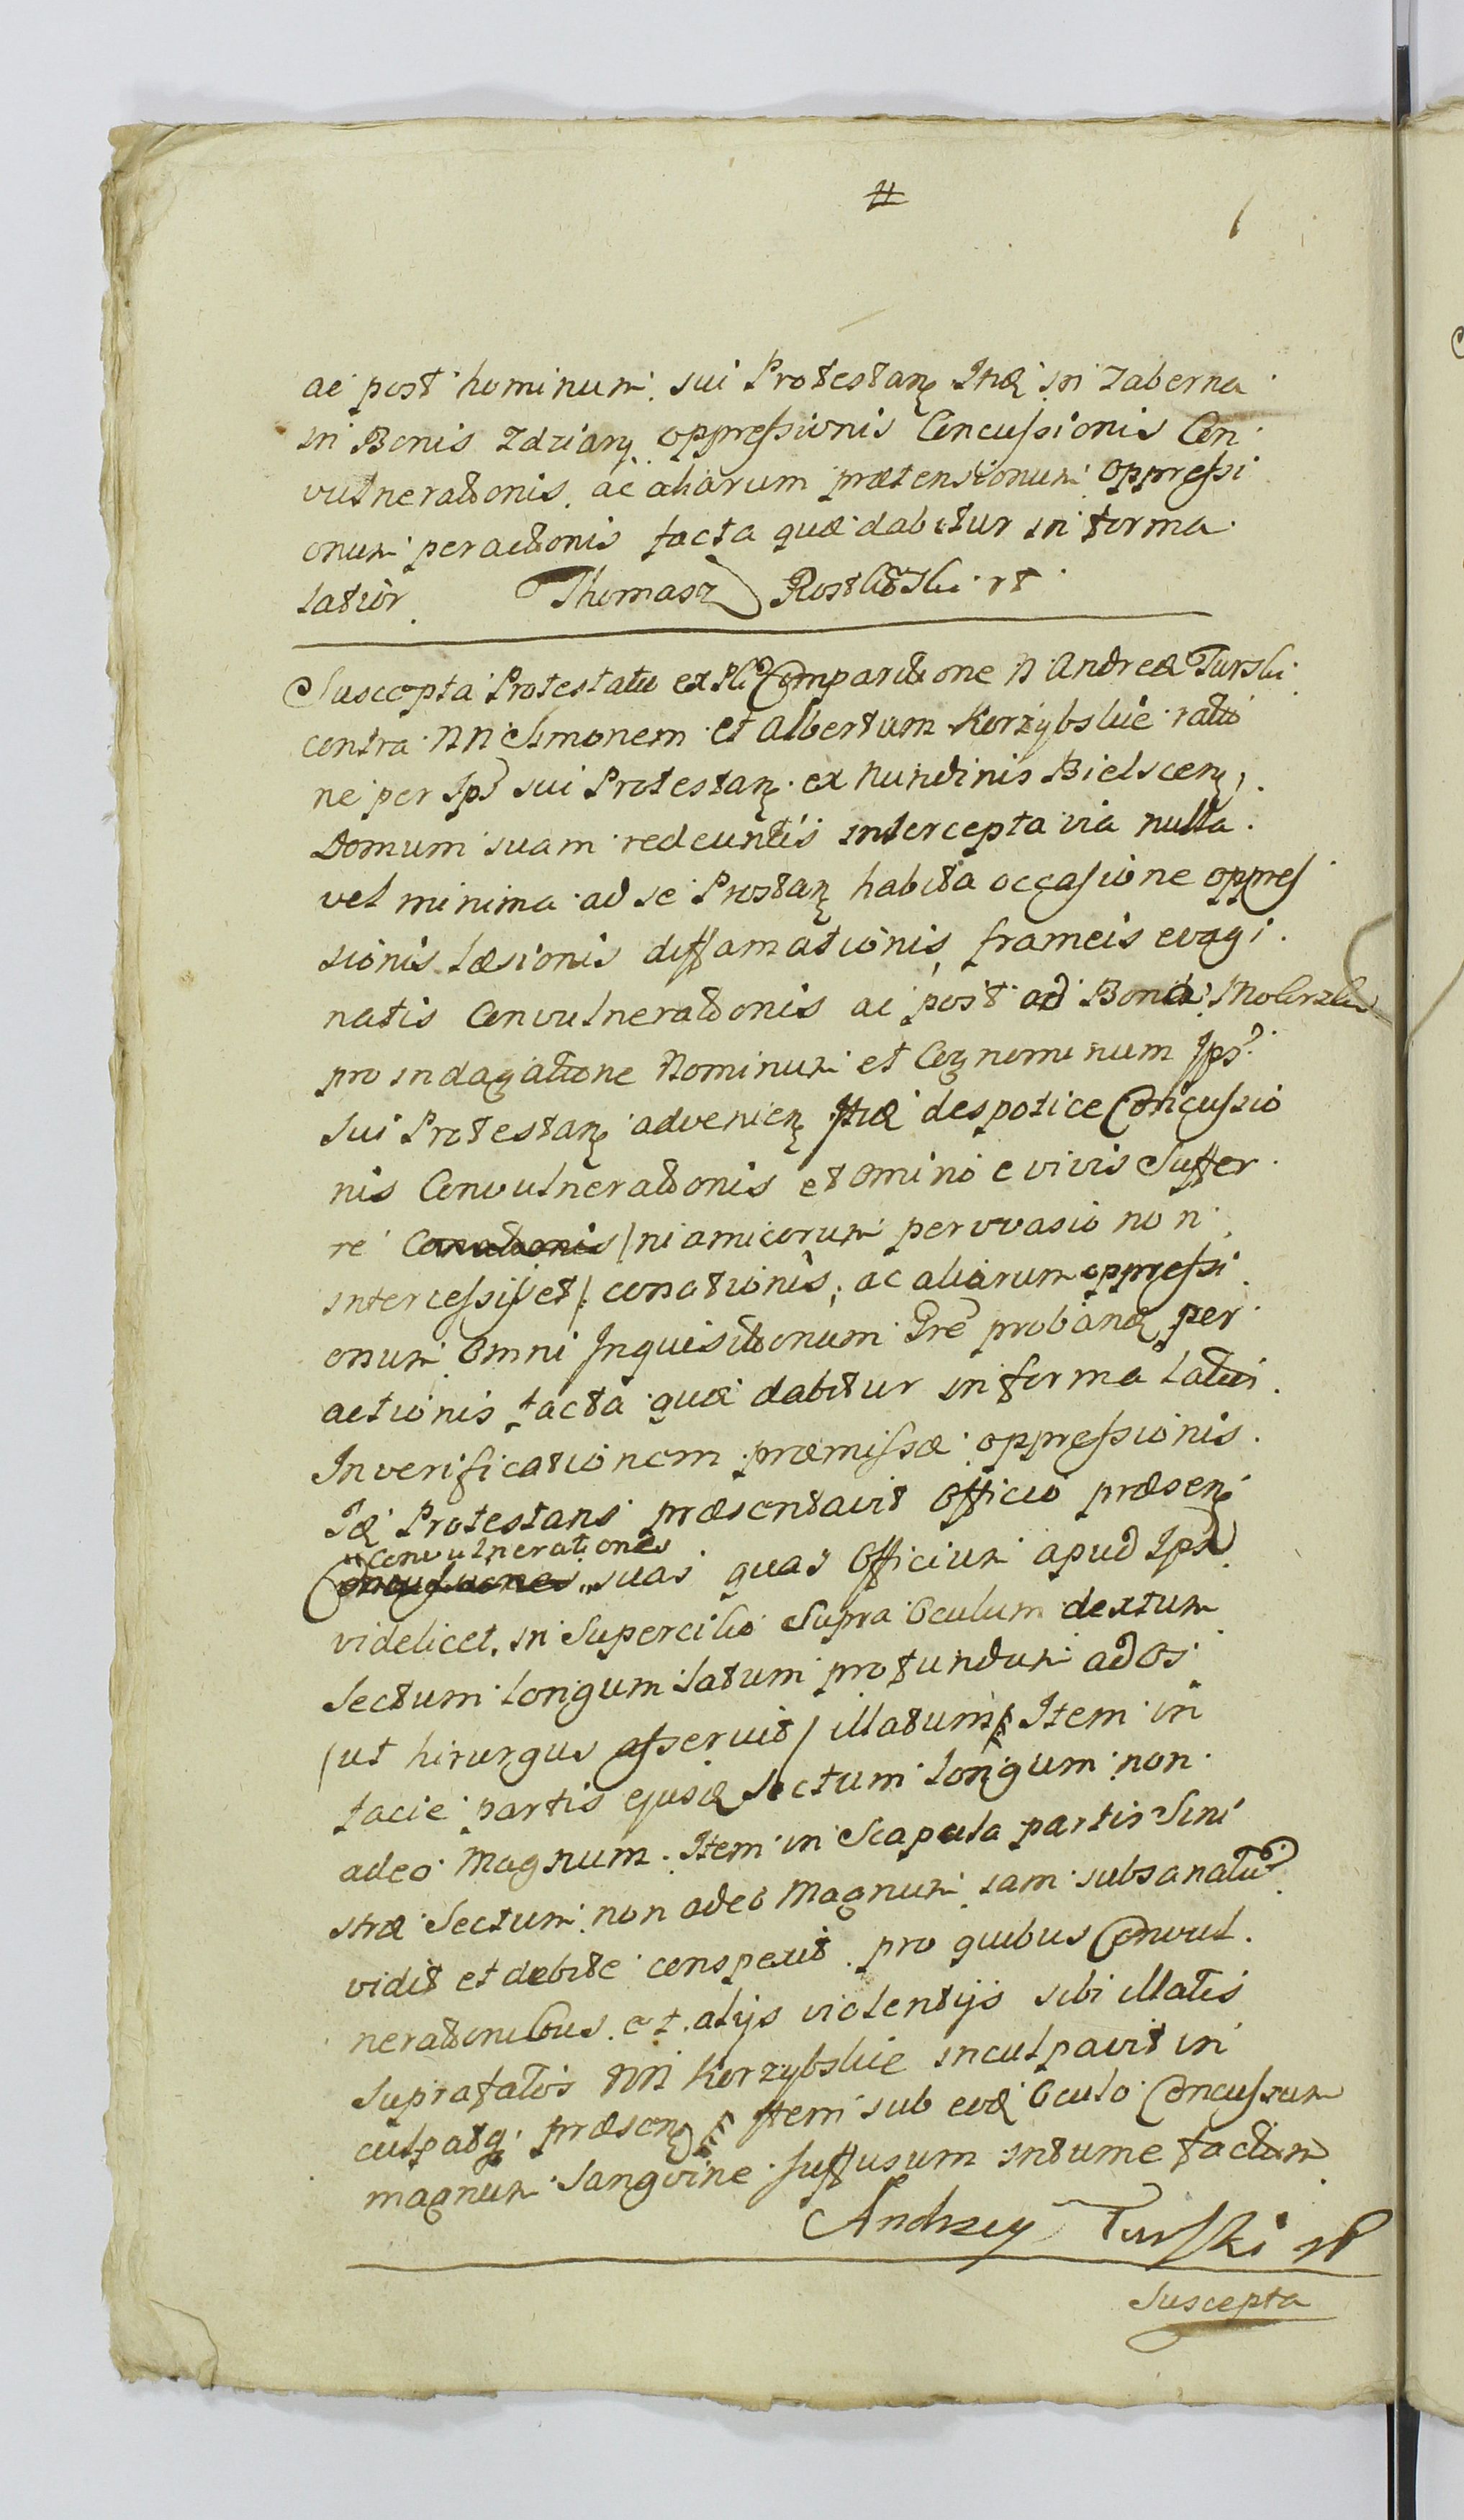 #
ac post hominum sui Protestanę Itaꝗ in Taberna
in Bonis Zdziarą oppressionis Concussionis Con
vulnerationis ac aliarum prætensionum oppressi
onum peractionis facta quæ dabitur in forma
latior. Thomasz Rostkowski
Suscepta Protestatio ex Comparitione N Andreæ Turski
contra NN Simonem et Albertum Korzybskie ratio
ne per Ips sui Protestanę ex Nundinis Bielscenę
Domum suam redeuntis intercepta via nulla
vel minima ad se Prostanę habita occasione oppres
sionis læsionis diffamationis frameis evagi
natis Convulnerationis ac post ad Bona
pro indagatione Nominum et Cognominum Ips
sui Protestanę advenienę despotice Concussio
nis Convulnerationis et omnino e vivis Suffer
re Conationis /ni amicorum pervvasio non
intercessisset/ conationis, ac aliarum oppressi
onum omni Inquisitionum Gre probandę per
actionis facta quæ dabitur in forma latiori
In verificationem præmissæ oppressionis
Protestans præsentavit Officio præsenę
Convulnerationes
Concussiones suas quas Officium apud Ips
videlicet in Supercilio Supra Oculum dextrum
Sectum longum latum profundum ad Os
/ut hirurgus asseruit/ illatum Item in
facie partis ejusd Sectum longum non
adeo Magnum. Item in Scapula partis Sini
stræ Sectum non adeo Magnum iam subsanatu
vidit et debite conspexit pro quibus Convul
nerationibus et alijs violentijs sibi illatis
Suprafatos NN Korzybskie inculpavit in
culpatq præsenę Item sub eod Oculo Concussum
magnum Sangvine suffusum intumefactum
Andrzey Turski
Suscepta